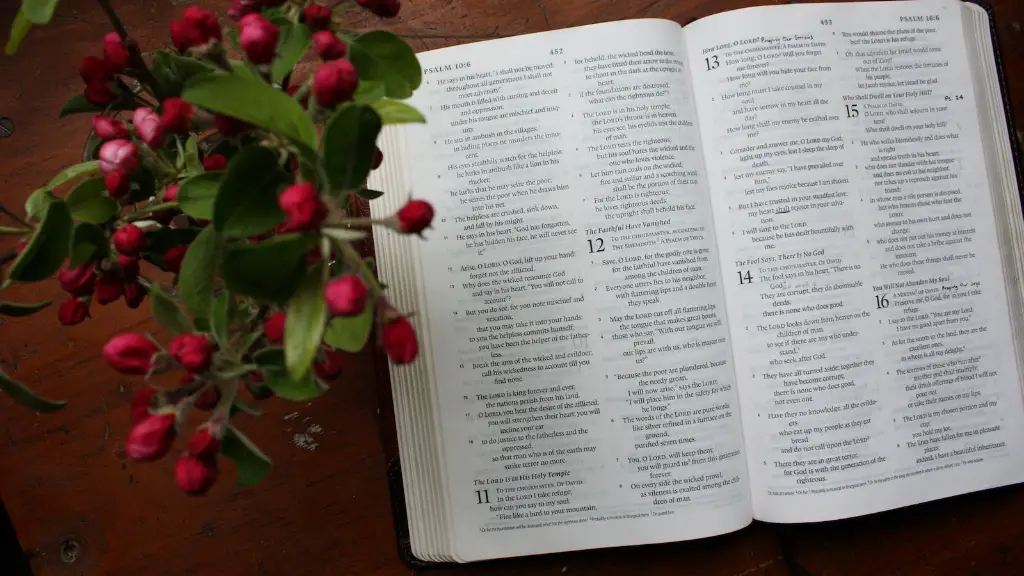 PSALM 10:6
452
"He says in his heart, "I shall not be moved;
throughout all generations I shall not
meet adversity."
His mouth is filled with cursing and deceit
and oppression;
under his tongue are mischief and iniq-
uity.
He sits in ambush in the villages;
in hiding places he murders the inno-
cent.
His eyes stealthily watch for the helpless;
he lurks in ambush like a lion in his
thicket;
he lurks that he may seize the poor;
he seizes the poor when he draws him
into his net.
The helpless are crushed, sink down,
and fall by his might.
He says in his heart, "God has forgotten,
he has hidden his face, he will never see
it."
12 Arise, O LORD; O God, lift up your hand;
forget not the afflicted.
13 Why does the wicked renounce God
and say in his heart, "You will not call to
account"?
14 But you do see, for you note mischief and
vexation,
that you may take it into your hands;
to you the helpless commits himself;
you have been the helper of the father-
less.
15 Break the arm of the wicked and evildoer;
call his wickedness to account till you
find none.
16 The LORD is king forever and ever;
the nations perish from his land.
17 O LORD, you hear the desire of the afflicted;
you will strengthen their heart; you will
incline your ear
18 to do justice to the fatherless and the
oppressed,
so that man who is of the earth may
strike terror no more.
The LORD Is in His Holy Temple
11 TO THE CHOIRMASTER. OF DAVID.
In the LORD I take refuge;
how can you say to my soul,
"Flee like a bird to your mountain,
for behold, the wicked bend the bow;
they have fitted their arrow to the string
to shoot in the dark at the upright in
heart;
if the foundations are destroyed,
what can the righteous do?"
4 The LORD is in his holy temple;
the LORD's throne is in heaven;
his eyes see, his eyelids test the children
of man.
5 The LORD tests the righteous,
but his soul hates the wicked and the
one who loves violence.
6 Let him rain coals on the wicked;
fire and sulfur and a scorching wind
shall be the portion of their cup.
7 For the LORD is righteous;
he loves righteous deeds;
the upright shall behold his face.
The Faithful Have Vanished
12 TO THE CHOIRMASTER: ACCORDING TO
THE SHEMINITH. A PSALM OF DAVID.
Save, O LORD, for the godly one is gone;
for the faithful have vanished from
among the children of man.
2 Everyone utters lies to his neighbor;
with flattering lips and a double heart
they speak.
3 May the LORD cut off all flattering lips,
the tongue that makes great boasts,
4 those who say, "With our tongue we will
prevail,
our lips are with us; who is master over
us?"
5 "Because the poor are plundered, because
the needy groan,
I will now arise," says the LORD;
"I will place him in the safety for which
he longs."
6 The words of the LORD are pure words,
like silver refined in a furnace on the
ground,
purified seven times.
7 You, O LORD, will keep them;
you will guard us from this generation
forever.
8 On every side the wicked prowl,
as vileness is exalted among the chil-
dren of man.
453
PSALM 16:6
How Long, O LORD?
13 TO THE CHOIRMASTER. A PSALM OF DAVID.
How long, O LORD? Will you forget
me forever?
How long will you hide your face from
me?
2 How long must I take counsel in my
soul
and have sorrow in my heart all the
day?
How long shall my enemy be exalted over
me?
3 Consider and answer me, O LORD my God;
light up my eyes, lest I sleep the sleep of
death,
4 lest my enemy say, "I have prevailed over
him,"
lest my foes rejoice because I am shaken.
5 But I have trusted in your steadfast love;
my heart shall rejoice in your salva-
tion.
6 I will sing to the LORD,
because he has dealt bountifully with
me.
The Fool Says, There Is No God
14 TO THE CHOIRMASTER. OF DAVID.
The fool says in his heart, "There is no
God."
They are corrupt, they do abominable
deeds;
there is none who does good.
2 The LORD looks down from heaven on the
children of man,
to see if there are any who under-
stand,
who seek after God.
3 They have all turned aside; together they
have become corrupt;
there is none who does good,
not even one.
4 Have they no knowledge, all the evildo-
ers
who eat up my people as they eat
bread
and do not call upon the LORD?
5 There they are in great terror,
for God is with the generation of the
righteous.
6 You would shame the plans of the poor,
but the LORD is his refuge.
7 Oh, that salvation for Israel would come
out of Zion!
When the LORD restores the fortunes of
his people,
let Jacob rejoice, let Israel be glad.
Who Shall Dwell on Your Holy Hill?
Ps. 24
15 A PSALM OF DAVID.
O LORD, who shall sojourn in your
tent?
Who shall dwell on your holy hill?
2 He who walks blamelessly and does what
is right
and speaks truth in his heart;
3 who does not slander with his tongue
and does no evil to his neighbor,
nor takes up a reproach against his
friend;
4 in whose eyes a vile person is despised,
but who honors those who fear the
LORD;
who swears to his own hurt and does not
change;
5 who does not put out his money at interest
and does not take a bribe against the
innocent.
He who does these things shall never be
moved.
You Will Not Abandon My Soul
16 A MIKTAM OF DAVID.
Preserve me, O God, for in you I take
refuge.
2 I say to the LORD, "You are my Lord;
I have no good apart from you."
3 As for the saints in the land, they are the
excellent ones,
in whom is all my delight.
4 The sorrows of those who run after
another god shall multiply;
their drink offerings of blood I will not
pour out
or take their names on my lips.
5 The LORD is my chosen portion and my
cup;
you hold my lot.
6 The lines have fallen for me in pleasant
places;
indeed, I have a beautiful inheritance.